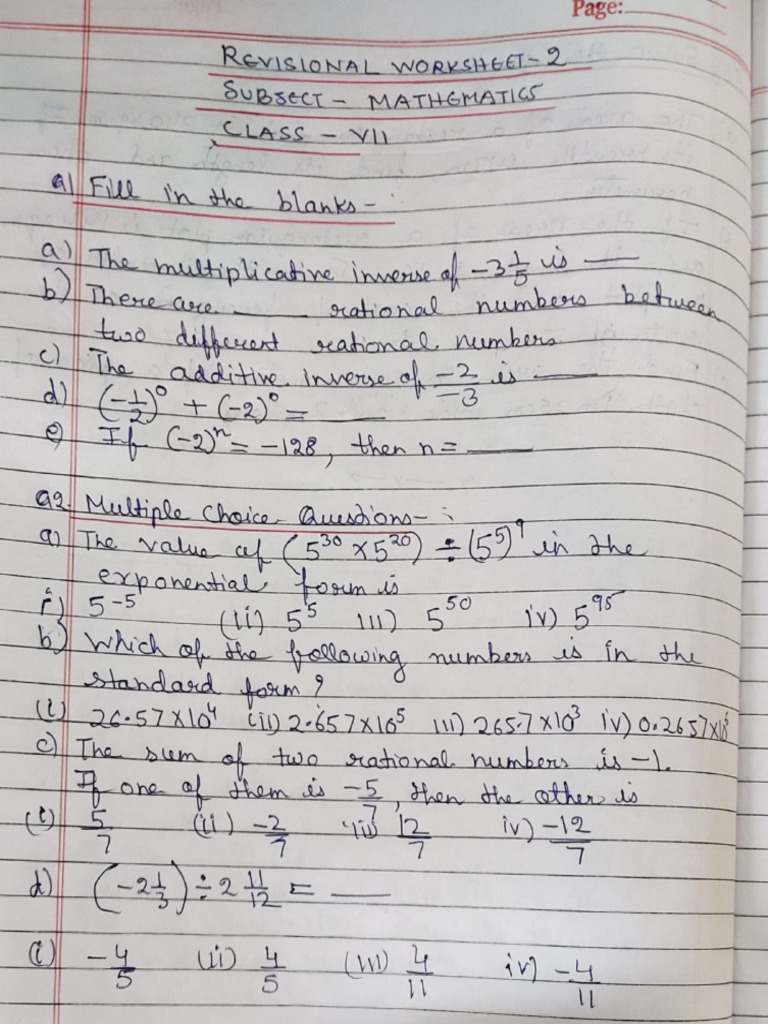 Page:
REVISIONAL WORKSHEET-2
SUBJECT - MATHEMATICS
CLASS - VII
Q1 Fill in the blanks -
a) The multiplicative inverse of -3 1/5 is ___
b) There are ___ rational numbers between
two different rational numbers
c) The additive inverse of -2/-3 is ___
d) (-1/2)⁰ + (-2)⁰ = ___
e) If (-2)ⁿ = -128, then n = ___
Q2. Multiple Choice Questions- :
a) The value of (5³⁰ × 5²⁰) ÷ (5⁵)⁹ in the
exponential form is
i) 5⁻⁵ (ii) 5⁵ III) 5⁵⁰ iv) 5⁹⁵
b) Which of the following numbers is in the
standard form?
(i) 26.57×10⁴ (ii) 2.657×10⁵ III) 265.7×10³ iv) 0.2657×10
c) The sum of two rational numbers is -1.
If one of them is -5/7, then the other is
(i) 5/7 (ii) -2/7 iii) 12/7 iv) -12/7
d) (-2 1/3) ÷ 2 11/12 = ___
(i) -4/5 (ii) 4/5 (III) 4/11 iv) -4/11